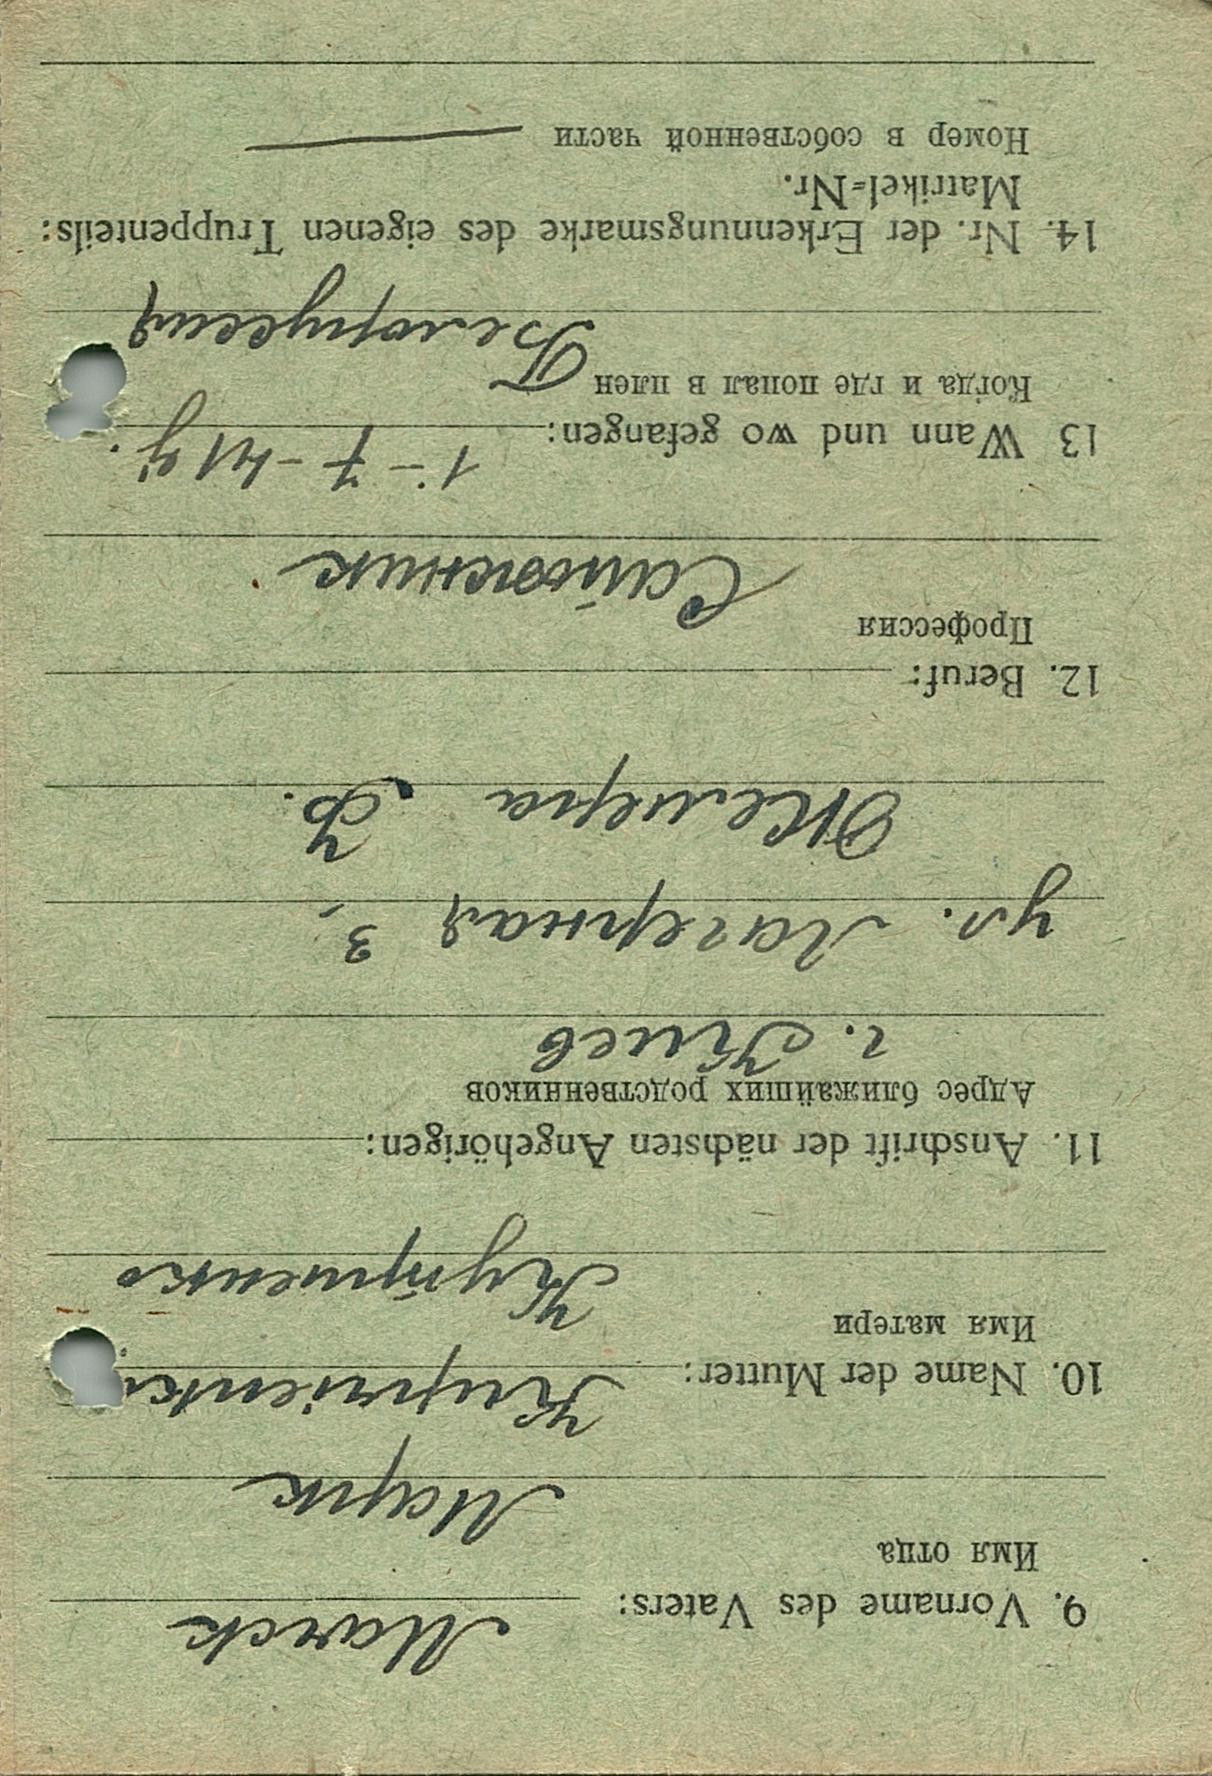 9. Vorname des Vaters: Marck
Имя отца
Марк
10. Name der Mutter:
Имя матери
Куприенко
11. Anschrift der nächsten Angehörigen:
Адрес ближайших родственников
г. Киев
ул. Лагерная 3,
Жемера Ф.
12. Beruf:
Профессия
Сапожник
13 Wann und wo gefangen: 1-7-41 g.
Когда и где попал в плен Белоруссия
14. Nr. der Erkennungsmarke des eigenen Truppenteils:
Matrikel-Nr.
Номер в собственной части